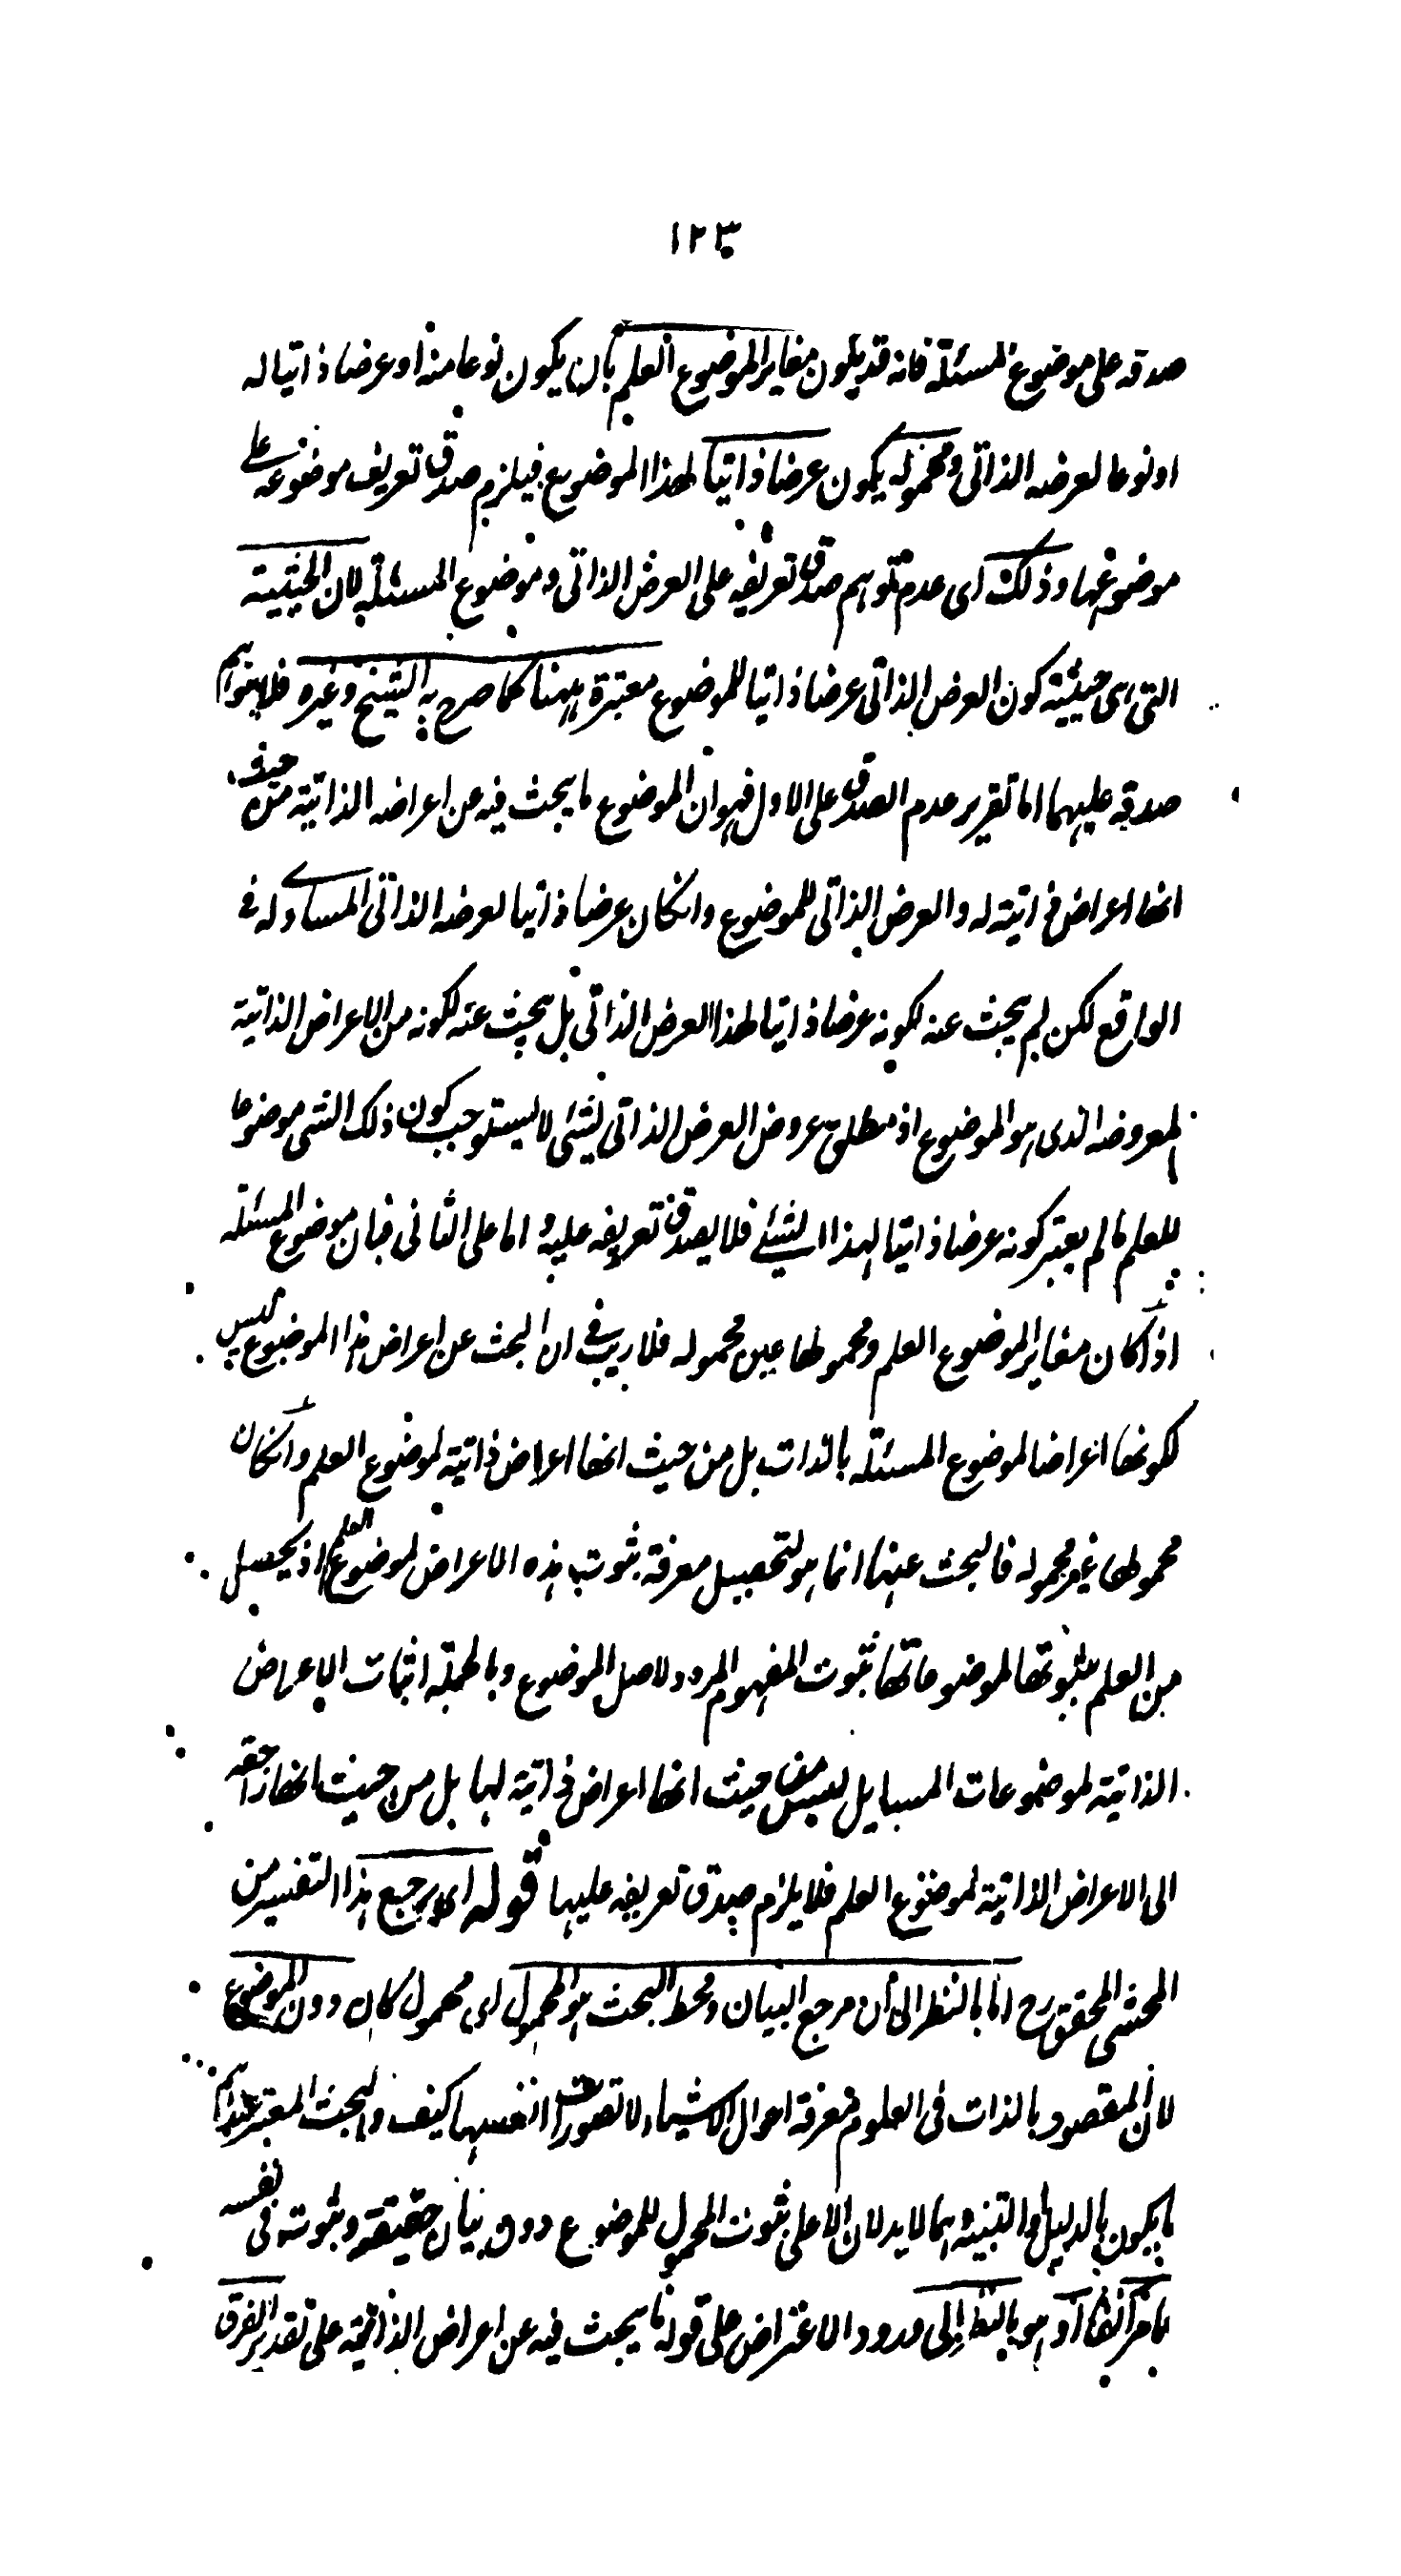 ١٢٣
صدقه على موضوع المسئلة فانه قد يكون مغاير الموضوع العلم بان يكون نوعا منه او عرضا ذاتيا له
او نوعا لعرضه الذاتى ومحموله يكون عرضا ذاتيا لهذا الموضوع فيلزم صدق تعريف موضوعه على
موضوعها وذلك اى عدم توهم صدق تعريفه على العرض الذاتى وموضوع المسئلة لان الحيثية
التى هى حيثية كون العرض الذاتى عرضا ذاتيا للموضوع معتبرة ههنا كما صرح به الشيخ وغيره فلا يتوهم
صدقه عليهما اما تقرير عدم الصدق على الاول فهو ان الموضوع ما يبحث فيه عن اعراضه الذاتية من حيث
انها اعراض ذاتية له والعرض الذاتى للموضوع وانكان عرضا ذاتيا لعرضه الذاتى المساوله فى
الواقع لكن لم يبحث عنه لكونه عرضا ذاتيا لهذا العرض الذاتى بل يبحث عنه لكونه من الاعراض الذاتية
لمعروضه الذى هو الموضوع اذ مطلق عروض العرض الذاتى لشئى لا يستوجب كون ذلك الشى موضوعا
للعلم ما لم يعتبر كونه عرضا ذاتيا لهذا الشيئے فلا يصدق تعريفه عليه واما على الثانى فبان موضوع المسئله
اذا كان مغاير الموضوع العلم ومحمولها عين محموله فلا ريب فى ان البحث عن اعراض هذا الموضوع ليس
لكونها اعراضا لموضوع المسئلة بالذات بل من حيث انها اعراض ذاتية لموضوع العلم وانكان
محمولها غير محموله فالبحث عنها انما هو لتحصيل معرفة ثبوت هذه الاعراض لموضوع العلم اذ يحصل
من العلم بثبوتها لموضوعاتها ثبوت المفهوم المردد لاصل الموضوع وبالجملة اثبات الاعراض
الذاتية لموضوعات المسايل ليس من حيث انها اعراض ذاتية لها بل من حيث انها راجعه
الى الاعراض الذاتية لموضوع العلم فلا يلزم صدق تعريفه عليها قوله اى يرجع هذا التفسير من
المحشى المحقق رح اما بالنظر الى ان مرجع البيان ومحط البحث هو المحمول اى محمول كان دون الموضوع
لان المقصود بالذات فى العلوم معرفة احوال الاشياء لا تصورات انفسها كيف والبحث المعتبر عندهم
ما يكون بالدليل والتنبيه وهما لا يدلان الا على ثبوت المحمول للموضوع دون بيان حقيقته وثبوته فى نفسه
مامر آنفا او هو بالنظر الى ورود الاعتراض على قوله ما يبحث فيه عن اعراض الذاتية على تقدير الفرق